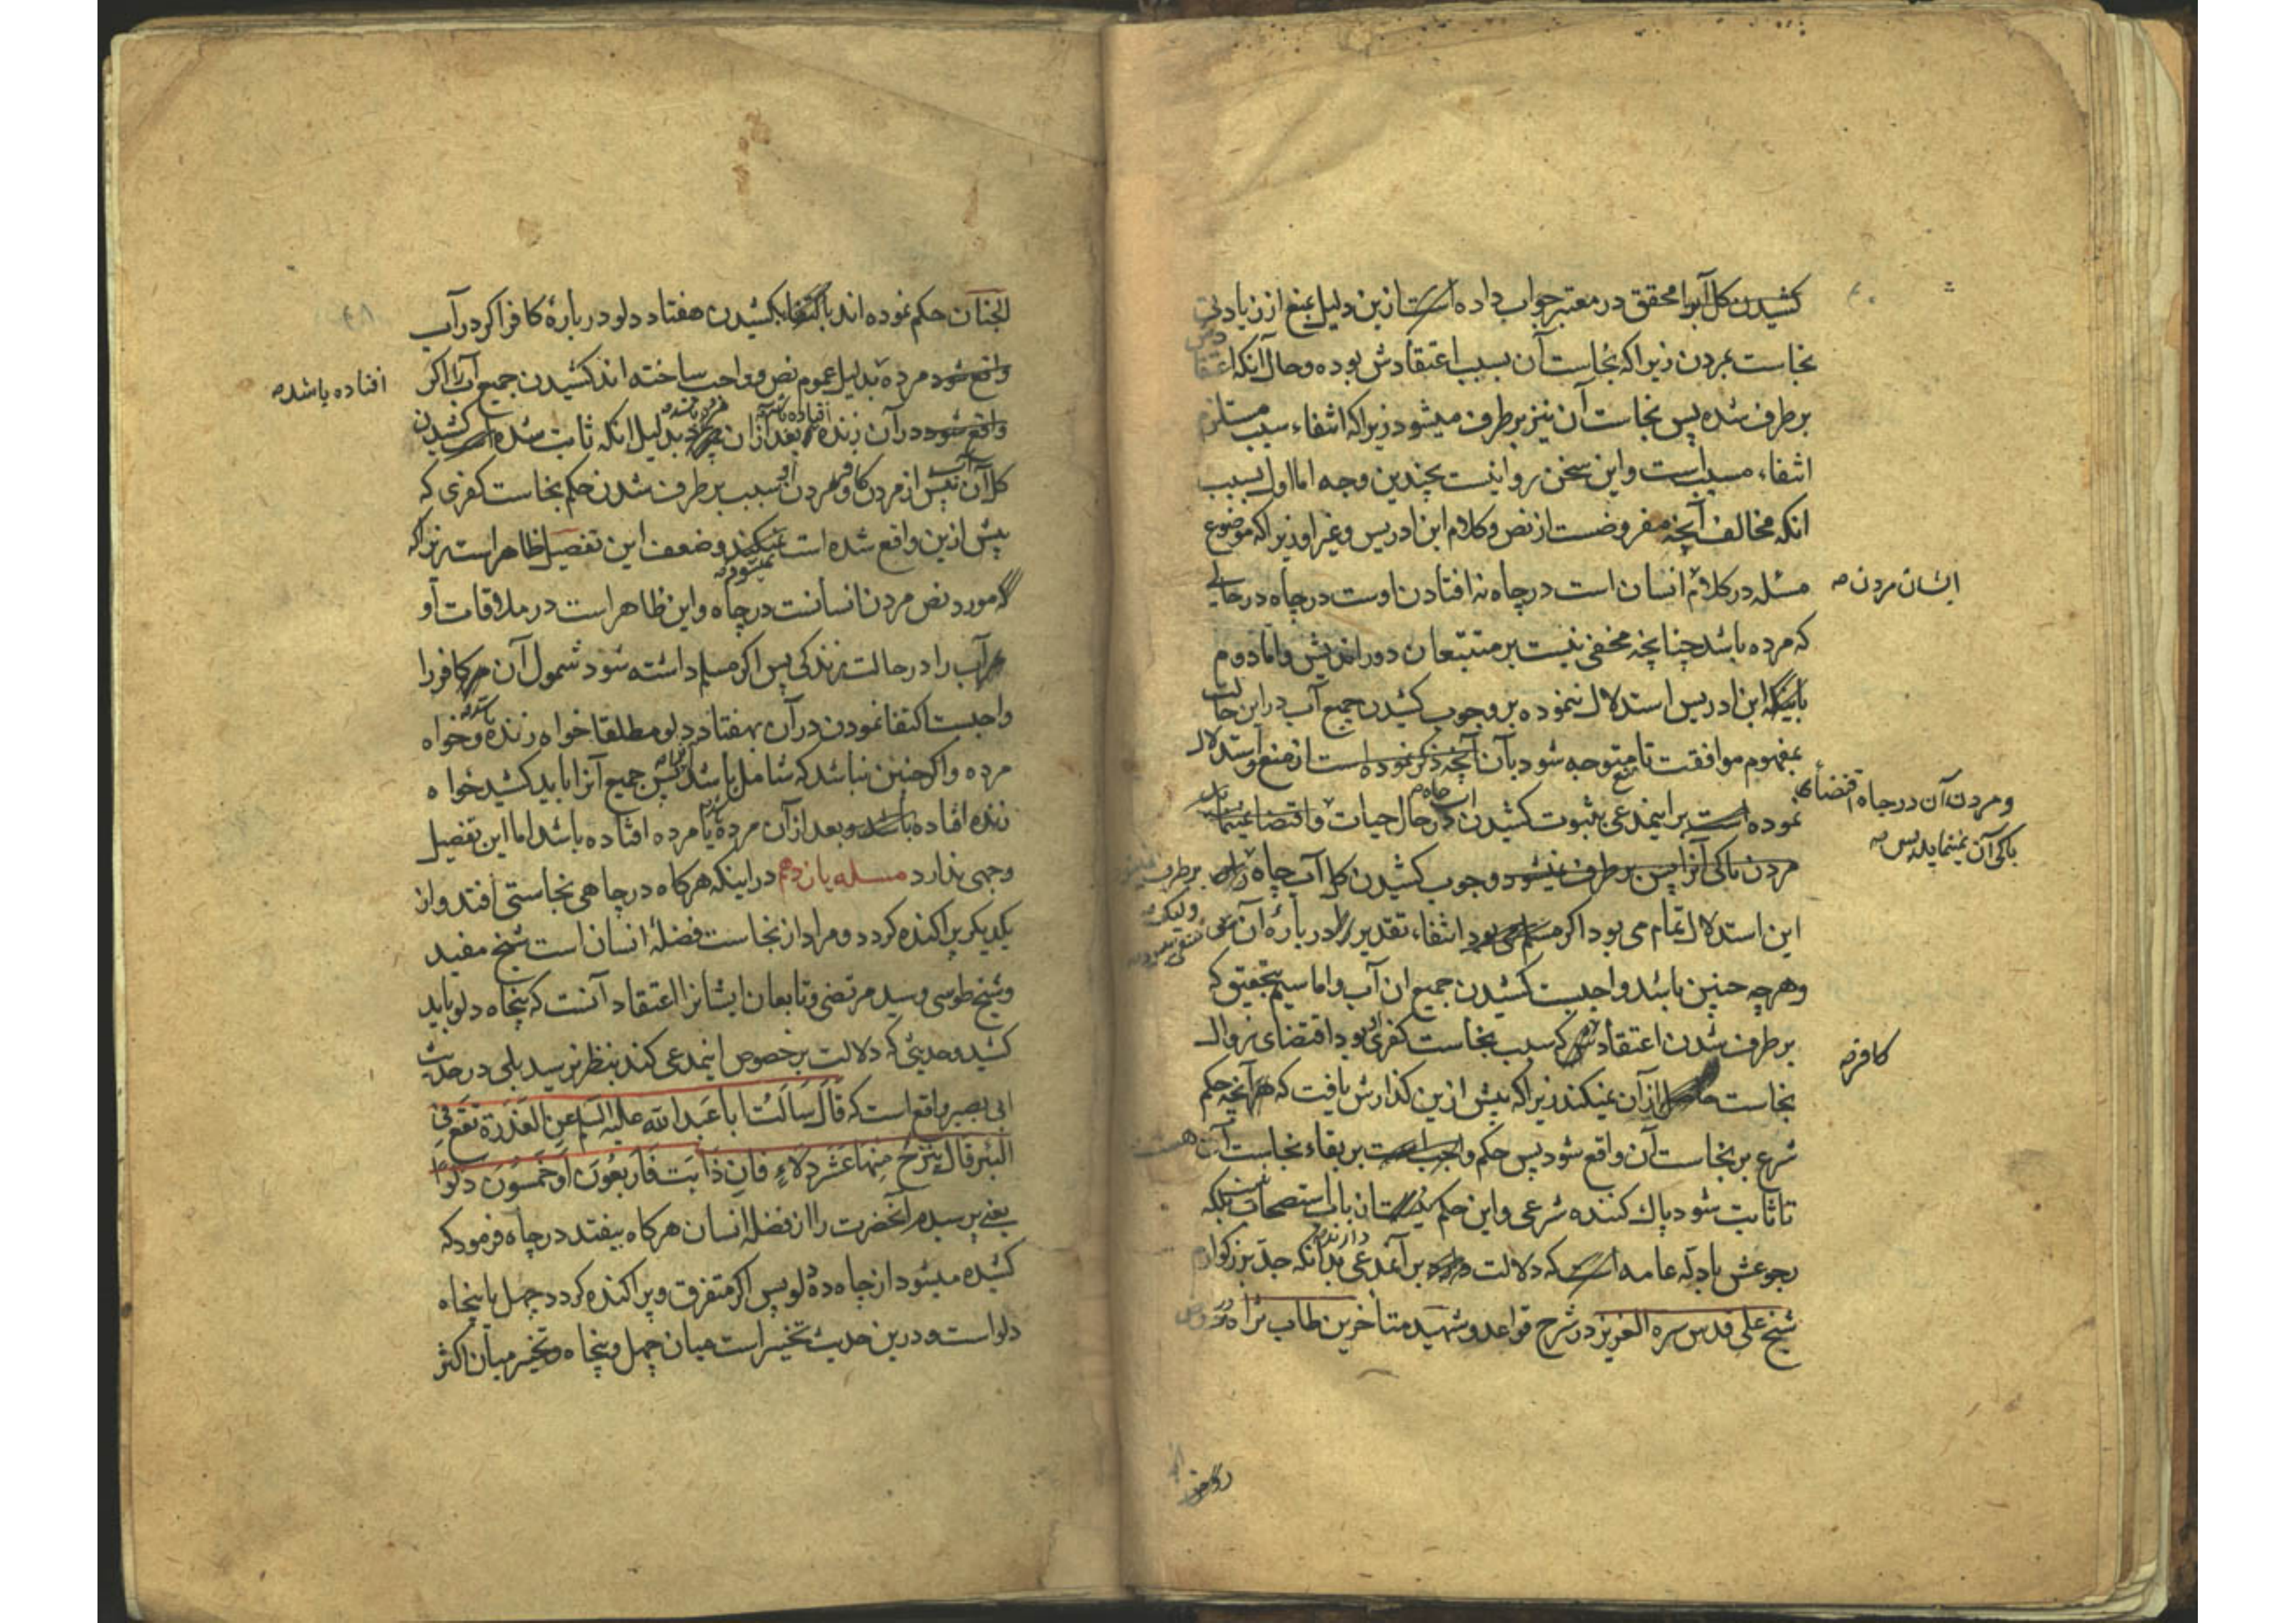 کشیدن کل آبرا محقق در معتبر جواب داده است ازین دلیل بمنع از زیادتی
نجاست بمردن زیرا که نجاست آن بسبب اعتقادش بوده و حال آنکه اعتقا
دش
برطرف شده پس نجاست آن نیز برطرف میشود زیرا که انتفاء سبب مستلزم
انتفاء مسبب است و این سخن روا نیست بچندین وجه اما اول بسبب
انکه مخالف آنچه مفروضست از نص و کلام ابن ادریس و غیر او زیرا که موضوع
مسئله در کلام انسان است در چاه نه افتادن اوست در چاه در حالی
ایشان مردن
که مرده باشد چنانچه مخفی نیست بر متتبعان دور اندیش و اما دوم
باینکه ابن ادریس استدلال ننموده بر وجوب کشیدن جمیع آب در این حالت
بمفهوم موافقت تا متوجه شود بآن آنچه ذکر نموده است از منع و استدلال
نموده است براینمدعی بثبوت کشیدن در حال حیات و اقتضا
و مردن آن در چاه اقتضای
پاکی آن نمینماید پس
مردن پاکی آنرا پس برطرف نمیشود وجوب کشیدن کل آب چاه
این استدلال تمام می بود اکر انتفاء تقدیر در بارهٔ آن
و لیکن
و هر چه چنین باشد واجبست کشیدن جمیع ان آب و اما سیم بتحقیق که
برطرف شدن اعتقاد که سبب نجاست کفری بود اقتضای زوال
کافر
نجاست از آن نمیکند زیرا که پیش ازین کذارش یافت که هر آنچه حکم
شرع بر نجاست آن واقع شود پس حکم بر بقاء نجاست آن هست
تا ثابت شود پاک کننده شرعی و این حکم باب استصحاب بلکه
رجوعش بادلهٔ عامه است که دلالت دارند بر آنمدعی بدانکه جد بزرکوارم
شیخ علی قدس سره العزیز در شرح قواعد و شهید متأخرین طاب ثراه در
روض
الجنان حکم نموده اند باکتفا بکشیدن هفتاد دلو در بارهٔ کافر اکر در آب
واقع شود مرده بدلیل عموم نص و واجب ساخته اند کشیدن جمیع آب را اکر
افتاده باشد
واقع شود در آن زنده بعد از ان بدلیل انکه ثابت شده کشیدن
افتاده باشد
کل آن آب پیش از مردن کافر و مردن او سبب برطرف شدن حکم نجاست کفری که
پیش ازین واقع شده است نمیکند و ضعف این تفصیل ظاهر است زیرا که
نمیشود
مورد نص مردن انسانست در چاه و این ظاهر است در ملاقات او
آب را در حالت زندکی پس اکر مسلم داشته شود شمول آن مر کافر را
واجبست اکتفا نمودن در آن بهفتاد دلو مطلقا خواه زنده و خواه
مرده و اکر چنین نباشد که شامل باشد آنرا پس جمیع آنرا باید کشید خواه
زنده افتاده باشد و بعد از آن مرده یا مرده افتاده باشد اما این تفصیل
وجهی ندارد مسله یازدهم در اینکه هرکاه در چاهی نجاستی افتد و از
یکدیکر پراکنده کردد و مراد از نجاست فضلهٔ انسان است شیخ مفید
و شیخ طوسی و سید مرتضی و تابعان ایشانرا اعتقاد آنست که پنجاه دلو باید
کشید و حدیثی که دلالت بر خصوص اینمدعی کند بنظر نرسید بلی در حدیث
ابی بصیر واقع است که قَالَ سَاَلْتُ اَبا عَبدِ اللّه عَلیه السلم عن العَذِرَة تَقَعُ فِی
البئر قال یُنزَحُ مِنهَا عَشْرُ دِلَاءٍ فَاِن ذَابَت فَاَربَعُونَ اَو خَمسُونَ دَلْوًا
یعنی پرسیدم آنحضرت را از فضلهٔ انسان هرکاه بیفتد در چاه فرمود که
کشیده میشود از چاه ده دلو پس اکر متفرق و پراکنده کردد چهل یا پنجاه
دلو است و درین حدیث تخییر است میان چهل و پنجاه و تخییر میان اکثر